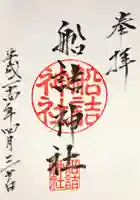 奉拝
船詰神社
船詰神社
平成二四年四月二一日
船詰神社